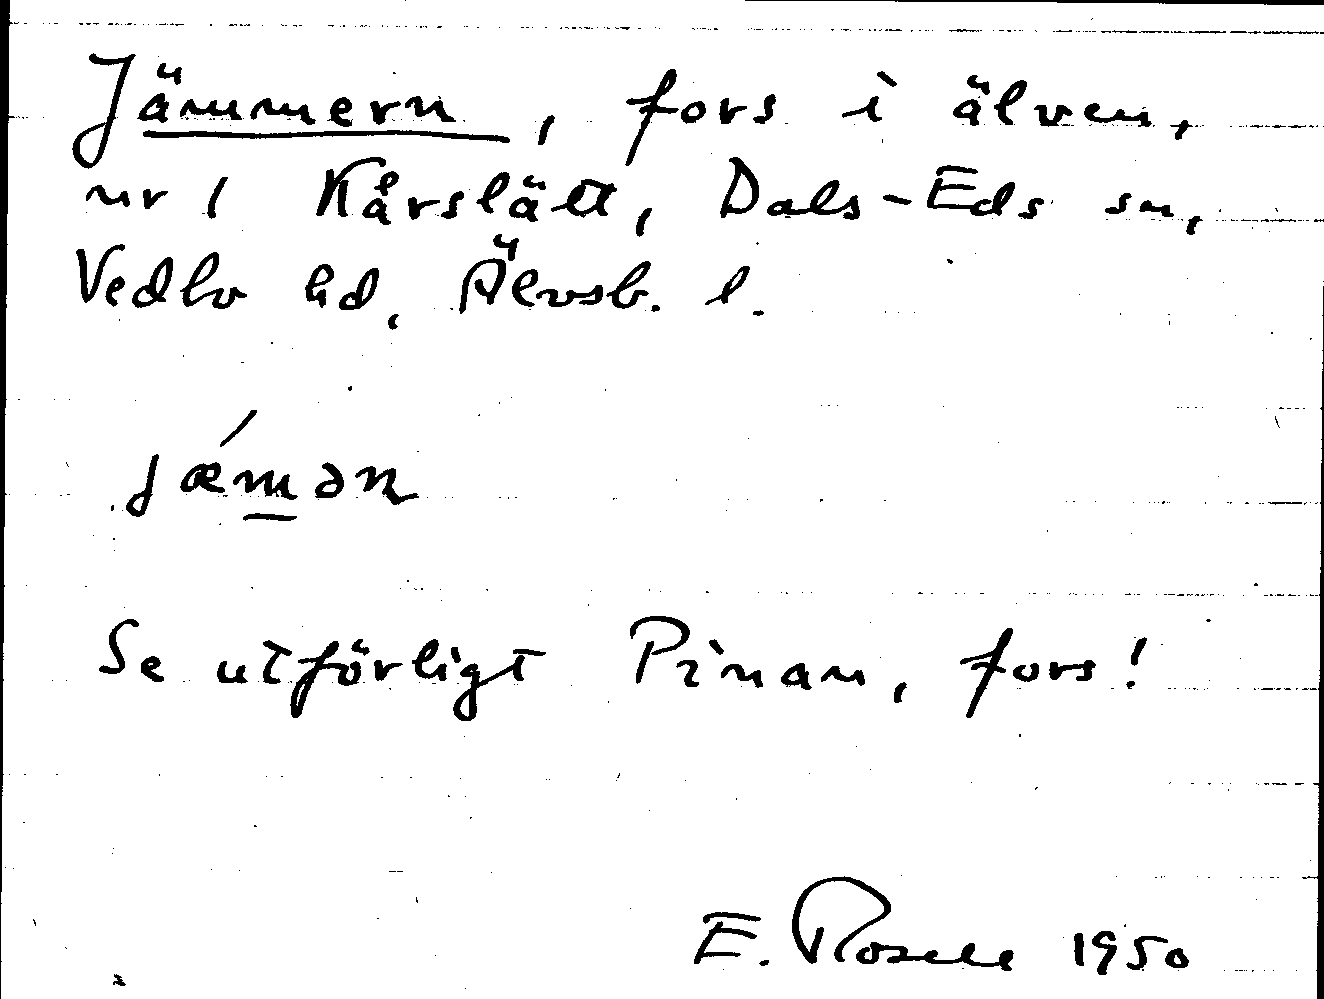 Jämmern, fors i älven,
nr 1 Kårslätt, Dals-Eds sn,
Vedbo hd, Älvsb. l.
jǽmən
Se utförligt Pinan, fors!
E. Rosell 1950